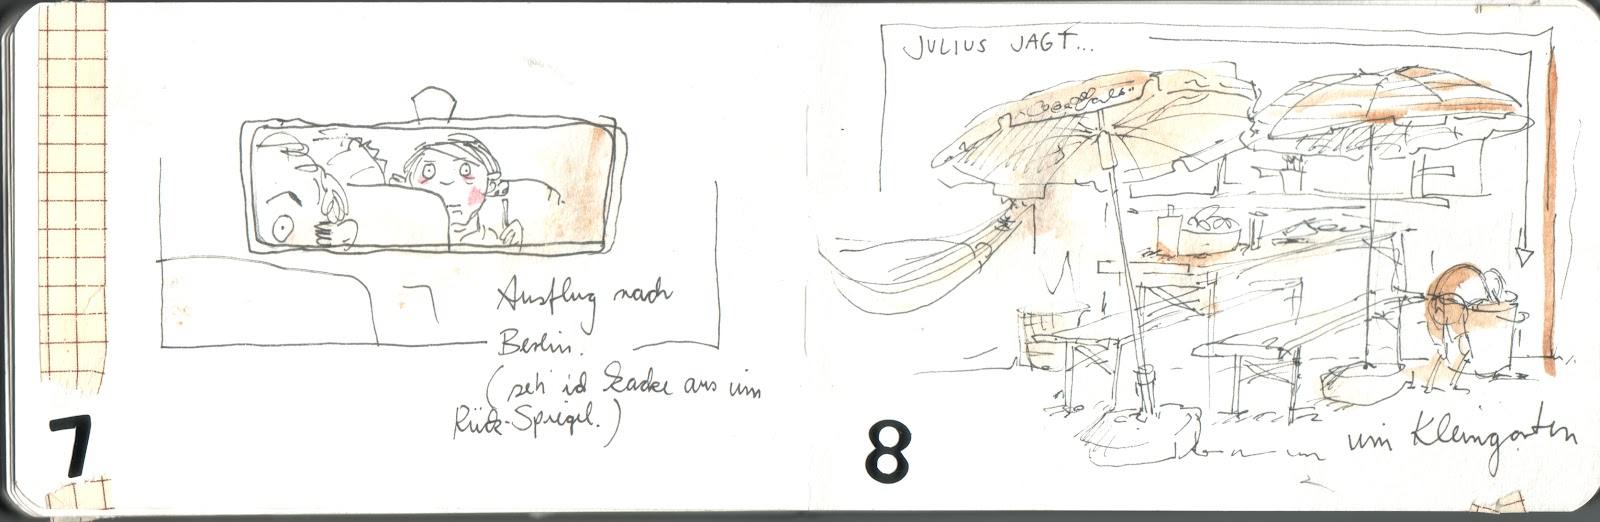 Ausflug nach
Berlin.
(seh ich kacke aus im
Rück-Spiegel.)
7
JULIUS JAGT...
im Kleingarten
8